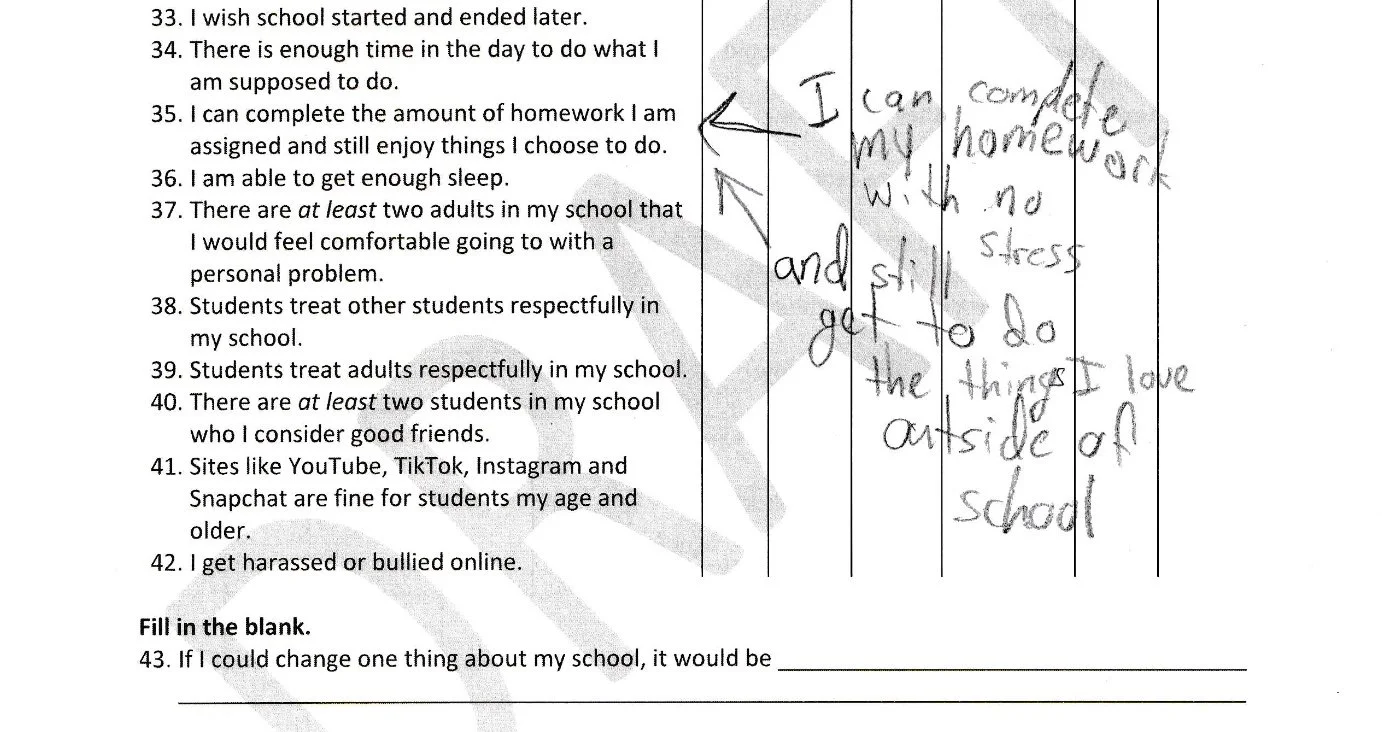 33. I wish school started and ended later.
34. There is enough time in the day to do what I
am supposed to do.
35. I can complete the amount of homework I am
assigned and still enjoy things I choose to do.
36. I am able to get enough sleep.
37. There are at least two adults in my school that
I would feel comfortable going to with a
personal problem.
38. Students treat other students respectfully in
my school.
39. Students treat adults respectfully in my school.
40. There are at least two students in my school
who I consider good friends.
41. Sites like YouTube, TikTok, Instagram and
Snapchat are fine for students my age and
older.
42. I get harassed or bullied online.
I can complete
my homework
with no
stress
and still
get to do
the things I love
outside of
school
Fill in the blank.
43. If I could change one thing about my school, it would be
DRAFT